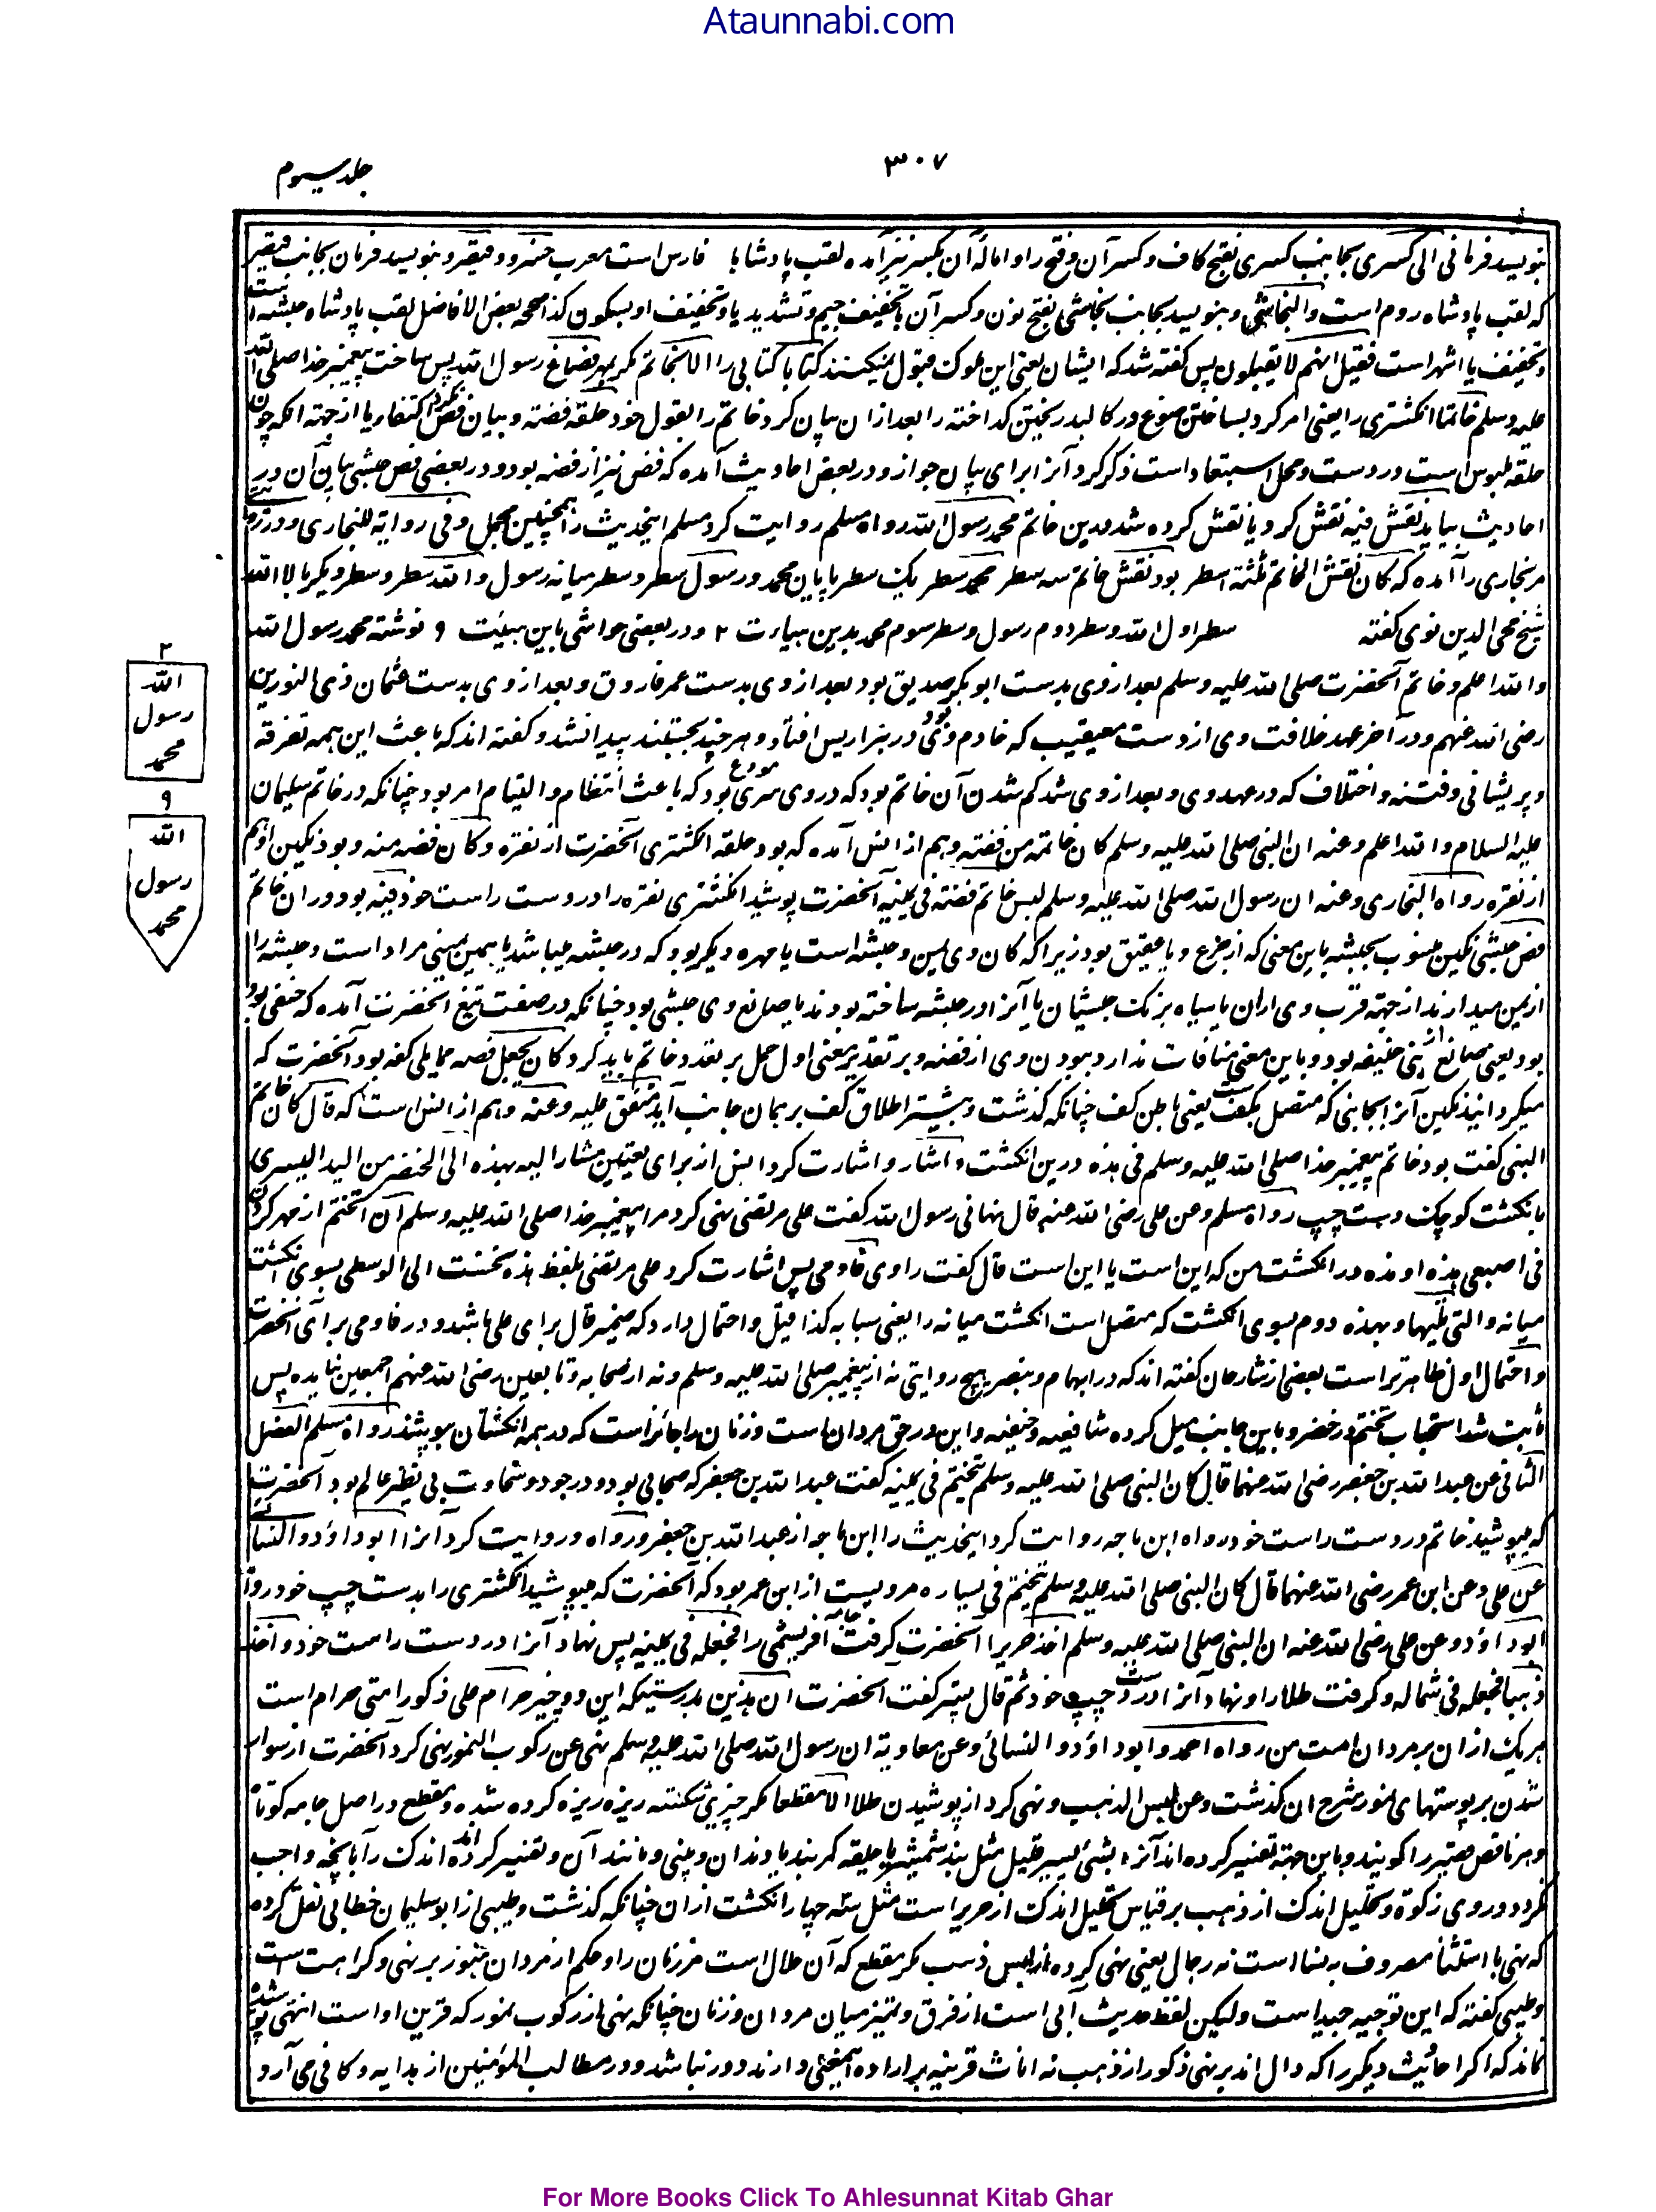 Ataunnabi.com
۳۰۷
جلد سیوم
بنویسد فرمانی الی کسری بجانب کسری بفتح کاف و کسر آن و فتح را و اماله آن بکسر نیز آمده لقب پادشاهان فارس است معرب خسرو و قیصر و بنویسد فرمان بجانب قیصر
که لقب پادشاه روم است والنجاشی و بنویسد بجانب نجاشی بفتح نون و کسر آن بتخفیف جیم و تشدید یا و تخفیف او بسکون کذا صححه بعض الافاضل لقب پادشاه حبشه است
و تخفیف یا اشهر است فقیل انهم لا یقبلون پس گفته شد که ایشان یعنی این ملوک قبول نمیکنند کتابا کتابی را الا بخاتم مگر بمهر فصاغ رسول الله پس ساخت پیغمبر خدا صلی الله
علیه وسلم خاتما انگشتری را یعنی امر کرد بساختن مصوغ در کالبد ریختن گداخته را بعد ازان بیان کرد خاتم را بقول خود حلقة فضة و بیان فص نکرد اکتفا و یا از جهته آنکه چون
حلقه ملبوس است در دست و محل استبعاد است ذکر کرد آنرا برای بیان جواز و در بعض احادیث آمده که فص نیز از فضه بود و در بعضی فص حبشی بیان آن در
احادیث بیاید نقش فیه نقش کرد یا نقش کرده شد درین خاتم محمد رسول الله رواه مسلم روایت کرد مسلم اینحدیث را همچنین مجمل و فی روایة للبخاری و در روایتی
مر بخاری را آمده که کان نقش الخاتم ثلثة اسطر بود نقش خاتم سه سطر محمد سطر یک سطر پایان محمد و رسول سطر و سطر میانه رسول و الله سطر و سطر دیگر بالا الله
شیخ محی الدین نوی گفته سطر اول الله و سطر دوم رسول و سطر سوم محمد بدین هیات ۲ و در بعضی حواشی باین هیئت ۹ نوشته محمد رسول الله
والله اعلم و خاتم آنحضرت صلی الله علیه وسلم بعد از وی بدست ابوبکر صدیق بود بعد از وی بدست عمر فاروق و بعد از وی بدست عثمان ذی النورین
رضی الله عنهم و در آخر عهد خلافت وی از دست معیقیب که خادم وی بود در بئر اریس افتاد و هرچند بجستند پیدا نشد و گفته اند که باعث این همه تفرقه
و پریشانی و فتنه و اختلاف که در عهد وی و بعد از وی شد گم شدن آن خاتم بود که در وی سری مودع بود که باعث انتظام و التیام امر بود چنانکه در خاتم سلیمان
علیه السلام والله اعلم وعنه ان النبی صلی الله علیه وسلم کان خاتمه من فضة و هم از انس آمده که بود حلقه انگشتری آنحضرت از نقره و کان فصه منه و بود نگین او هم
از نقره رواه البخاری وعنه ان رسول الله صلی الله علیه وسلم لبس خاتم فضة فی یمینه آنحضرت پوشید انگشتری نقره را در دست راست خود فیه بود در ان خاتم
فص حبشی نگین منسوب بحبشه باین معنی که از جزع و یا عقیق بود زیراکه کان وی یمن و حبشه است یا مهره دیگر بود که در حبشه میباشد یا همین یمنی مراد است و حبشه را
از یمن میدارند از جهته قرب وی ازان یا سیاه برنگ حبشیان یا آنرا در حبشه ساخته بودند یا صانع وی حبشی بود چنانکه در صفت تیغ آنحضرت آمده که حنفی بود
بود یعنی صانع از بنی حنیفه بود و باین معنی منافات ندارد ببودن وی از فضه و بر تقدیر معنی اول حمل بر تعدد خاتم باید کرد کان یجعل فصه مما یلی کفه بود آنحضرت که
میگردانید نگین آنرا بجانبی که متصل بکف است یعنی باطن کف چنانکه گذشت و بیشتر اطلاق کف بر همان جانب آید متفق علیه وعنه و هم از انس است که قال کان خاتم
النبی گفت بود خاتم پیغمبر خدا صلی الله علیه وسلم فی هذه درین انگشت و اشار و اشارت کرد انس از برای تعیین مشارالیه بهذه الی الخنصر من الید الیسری
بانگشت کوچک دست چپ رواه مسلم وعن علی رضی الله عنه قال نهانی رسول الله گفت علی مرتضی نهی کرد مرا پیغمبر خدا صلی الله علیه وسلم ان اتختم از مهر کردن
فی اصبعی هذه او هذه در انگشت من که این است یا این است قال گفت راوی فاومی پس اشارت کرد علی مرتضی بلفظ هذه نخست الی الوسطی بسوی انگشت
میانه والتی تلیها و بهذه دوم بسوی انگشت که متصل است انگشت میانه را یعنی سبابه کذا قیل و احتمال دارد که ضمیر قال برای علی باشد و در فاومی برای آنحضرت
و احتمال اول ظاهرتر است بعضی از شارحان گفته اند که در ابهام و بنصر هیچ روایتی نه از پیغمبر صلی الله علیه وسلم و نه از صحابه و تابعین رضی الله عنهم اجمعین نیامده پس
ثابت شد استحباب تختم در خنصر و باین جانب میل کرده شافعیه و حنفیه و این در حق مردان است و زنان را جائز است که در همه انگشتان بپوشند رواه مسلم الفصل
الثانی عن عبدالله بن جعفر رضی الله عنهما قال کان النبی صلی الله علیه وسلم یتختم فی یمینه گفت عبدالله بن جعفر که صحابی بود و در جود و سخاوت بی نظیر عالم بود آنحضرت
که میپوشید خاتم در دست راست خود رواه ابن ماجه روایت کرد اینحدیث را ابن ماجه از عبدالله بن جعفر و رواه و روایت کرد آنرا ابوداؤد والنسائی
عن علی وعن ابن عمر رضی الله عنهما قال کان النبی صلی الله علیه وسلم یتختم فی یساره مرویست از ابن عمر بود که آنحضرت که میپوشید انگشتری را بدست چپ خود رواه
ابوداؤد وعن علی رضی الله عنه ان النبی صلی الله علیه وسلم اخذ حریرا آنحضرت گرفت جامه ابریشمی را فجعله فی یمینه پس نهاد آنرا در دست راست خود و اخذ
ذهبا فجعله فی شماله و گرفت طلا را و نهاد آنرا در دست چپ خود ثم قال پستر گفت آنحضرت ان هذین بدرستیکه این دو چیز حرام علی ذکور امتی حرام است
هریک ازان بر مردان امت من رواه احمد و ابوداؤد والنسائی وعن معاویة ان رسول الله صلی الله علیه وسلم نهی عن رکوب النمور نهی کرد آنحضرت از سوار
شدن بر پوستهای نمور شرح آن گذشت وعن لبس الذهب و نهی کرد از پوشیدن طلا الا مقطعا مگر چیزی شکسته ریزه ریزه کرده شده و مقطع در اصل جامه کوتاه
و هر ناقص صغیر را گویند و باین جهته تفسیر کرده اند آنرا بشئ یسیر قلیل مثل بند شمشیر یا حلقه کمربند یا دندان و بینی و مانند آن و تفسیر کرده اند اندک را بآنچه واجب
نگردد در وی زکوة و تحلیل اندک از ذهب بر قیاس تحلیل اندک از حریر است مثل سه چهار انگشت ازان چنانکه گذشت و طیبی از ابوسلیمان خطابی نقل کرده
که نهی با استثنا مصروف به نسا است نه رجال یعنی نهی کرده از لبس ذهب مگر مقطع که آن حلال است مر زنان را و حکم از مردان هنوز بر نهی و کراهت است
و طیبی گفته که این توجیه جید است ولیکن لفظ حدیث آبی است از فرق و تمیز میان مردان و زنان چنانکه نهی از رکوب نمور که قرین او است انتهی پوشیده
نماند که اگر احادیث دیگر را که دال اند بر نهی ذکور از ذهب نه اناث قرینه بر اراده اینمعنی دارند دور نباشد و در مطالب المؤمنین از هدایه و کافی می آرد
۲
الله
رسول
محمد
۹
الله
رسول
محمد
For More Books Click To Ahlesunnat Kitab Ghar